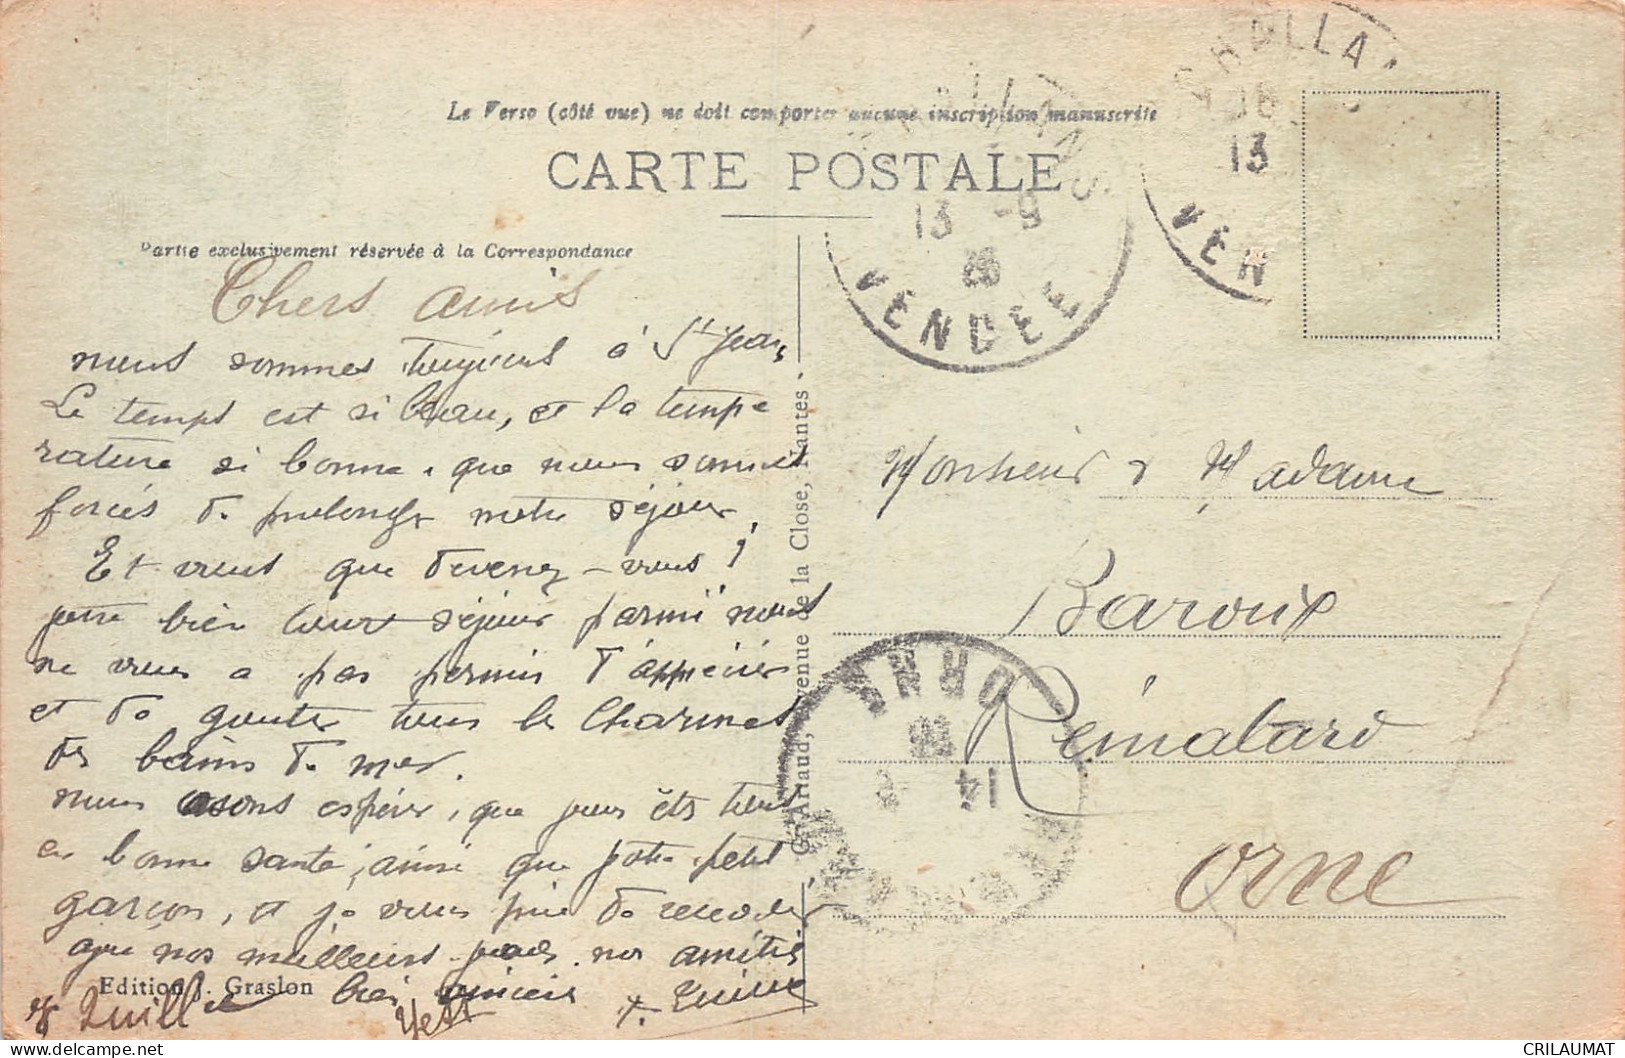 Le Verso (côté vue) ne doit comporter aucune inscription manuscrite
CARTE POSTALE
Partie exclusivement réservée à la Correspondance
CHALLANS
13 -9
26
VENDEE
CHALLA
16
13
VEN
Chers amis
nous sommes toujours à St Jean,
Le temps est si beau, et la tempé
rature si bonne, que nous sommes
forcés de prolonger notre séjour,
Et vous que devenez-vous ?
votre bien court séjour parmi nous
ne vous a pas permis d'apprécier
et de goûter tous le charmes
des bains de mer.
nous osons espérer, que vous êtes tous
en bonne santé, ainsi que votre petit
garçon, et je vous prie de recevoir
avec nos meilleurs nos amitiés
bien sincères
Monsieur & Madame
Baroux
Rémalard
Orne
ORNE
14
G. Artaud, Avenue de la Close, Nantes
Edition J. Graslon
CRILAUMAT